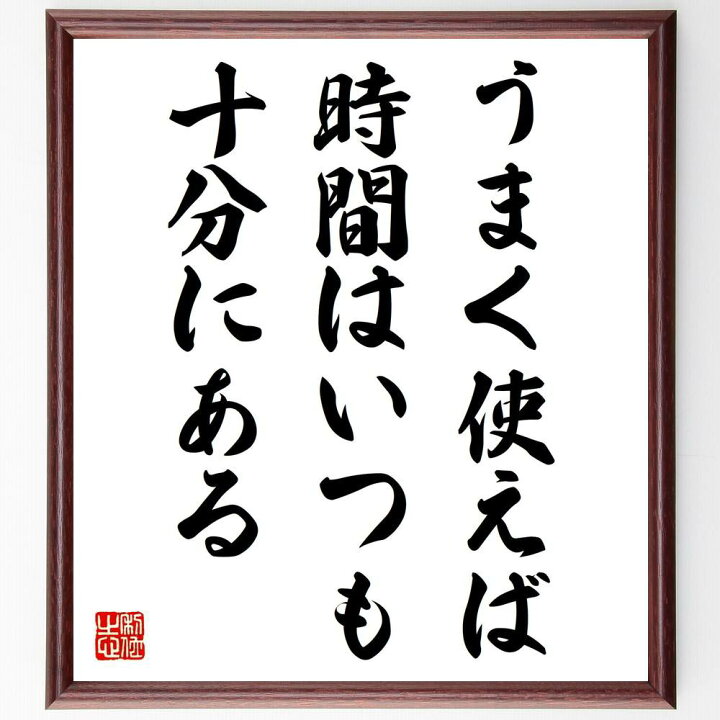 うまく使えば
時間はいつも
十分にある